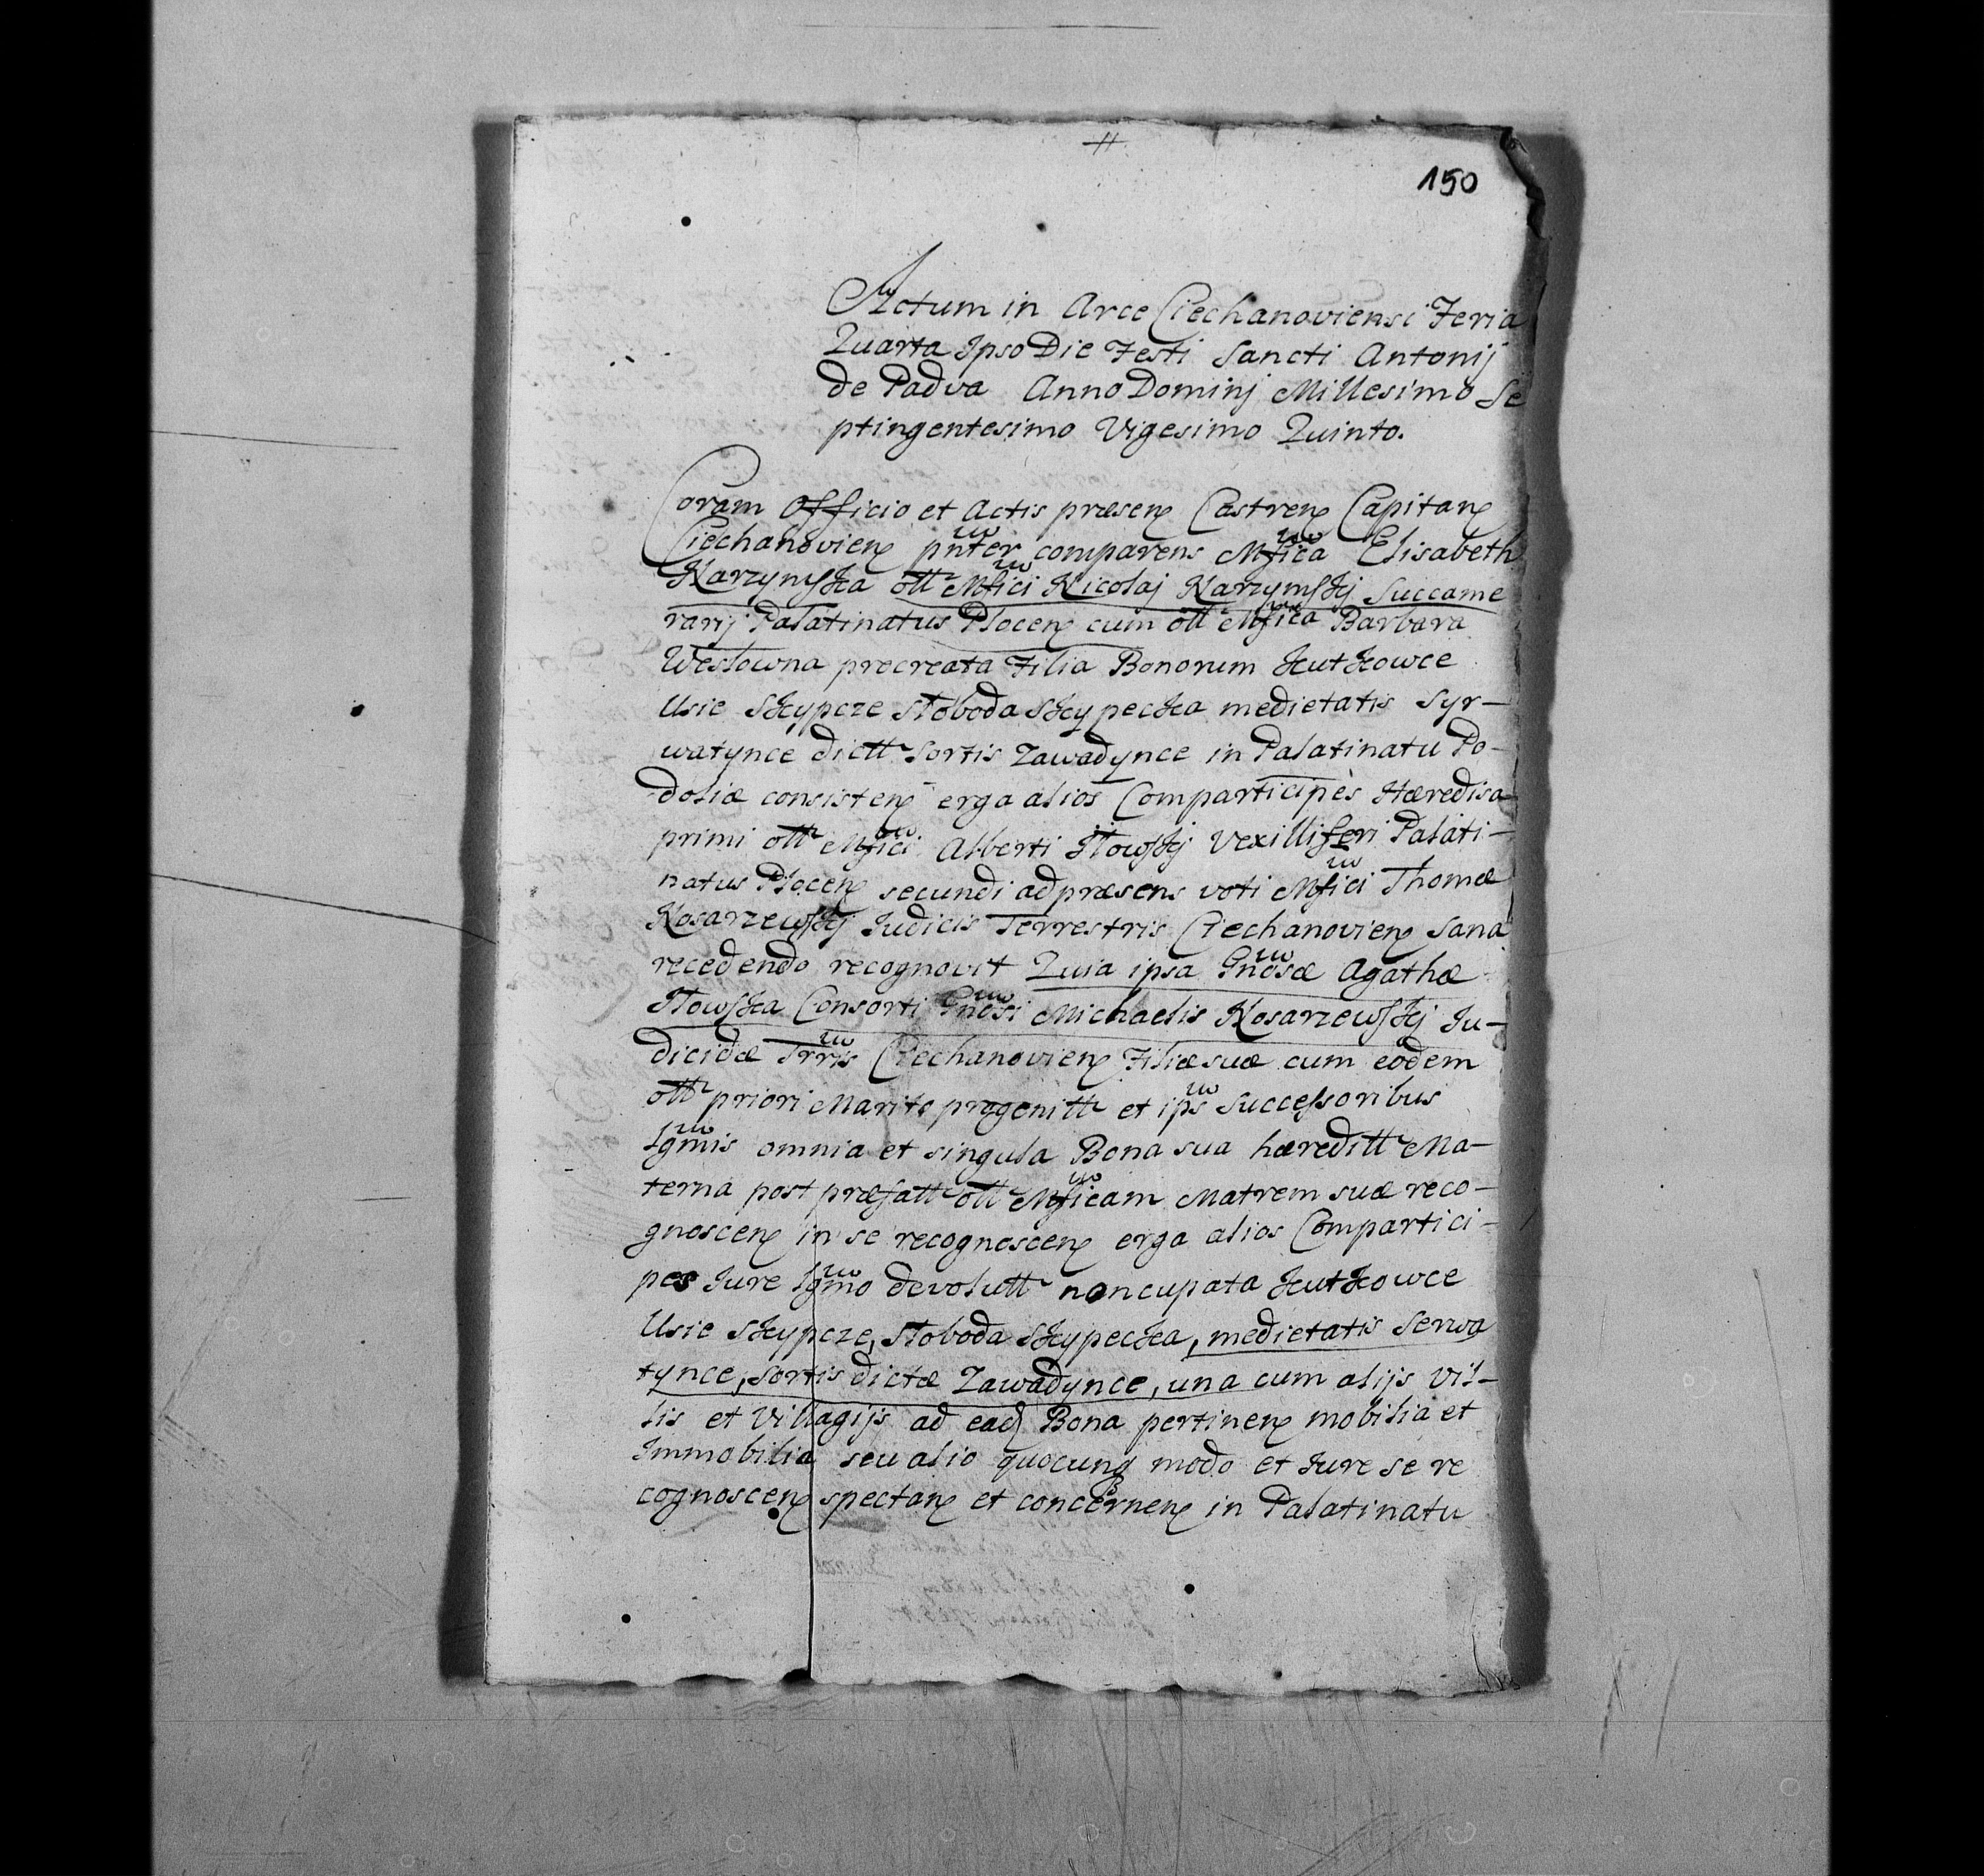 150
Actum in Arce Ciechanoviensi Feria
Quarta Ipso Die Festi Sancti Antonij
de Padva Anno Dominj Millesimo Se
ptingentesimo Vigesimo Quinto.
Coram Officio et Actis præsen Castren Capitan
Ciechanovien pnter comparens Mfica Elisabeth
Karzynska olt Mfici Nicolaj Karzynskj Succame
rarij Palatinatus Plocen cum olt Mfica Barbara
Weslowna precreata Filia Bonorum Kutkowce
Usie Skypcze Słoboda Skypecka medietatis Syr-
watynce dictt Sortis Zawadynce in Palatinatu Po-
doliæ consisten erga alios Comparticipès Hæredis a
primi olt Mfici Alberti Iłowskj Vexilliferi Palati-
natus Plocen secundi ad præsens voti Mfici Thomæ
Kosarzewskj Judicis Terrestris Ciechanovien sana
recedendo recognovit Quia ipsa Gnosæ Agathæ
Iłowska Consorti Gnosi Michaelis Kosarzewskj Ju-
dicidæ Trris Ciechanovien Filiæ suæ cum eodem
olt priori Marito progenitt et ips Successoribus
Lgmis omnia et singula Bona sua hæreditt Ma-
terna post præfatt olt Mficam Matrem suæ reco-
gnoscen in se recognoscen erga alios Compartici-
pes Jure Lgmo devolutt noncupata Kutkowce
Usie Skypcze, Słoboda Skypecka, medietatis Serwa
tynce, sortis dictæ Zawadynce, una cum alijs Vil-
lis et Villagijs ad ead Bona pertinen mobilia et
Immobilia seu alio quocunq modo et Jure se re
cognoscen spectan et concernen in Palatinatu